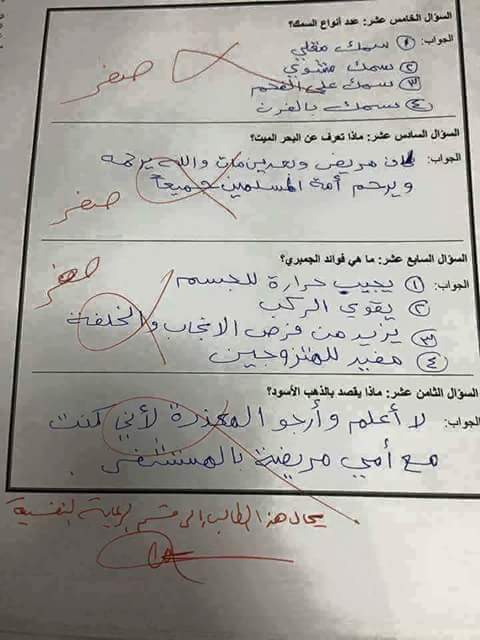 السؤال الخامس عشر: عدد أنواع السمك؟
الجواب: ١ سمك مقلي
٢ سمك مشوي
٣ سمك على الفحم
٤ سمك بالفرن
صفر
السؤال السادس عشر: ماذا تعرف عن البحر الميت؟
الجواب: كان مريض وبعدين مات والله يرحمه
ويرحم أمة المسلمين جميعاً
صفر
السؤال السابع عشر: ما هي فوائد الجمبري؟
الجواب: ١ يجيب حرارة للجسم
٢ يقوي الركب
٣ يزيد من فرص الانجاب والخلفة
٤ مفيد للمتزوجين
صفر
السؤال الثامن عشر: ماذا يقصد بالذهب الأسود؟
الجواب: لا أعلم وأرجو المعذرة لأني كنت
مع أمي مريضة بالمستشفى.
يحال هذا الطالب إلى قسم الرعاية النفسية